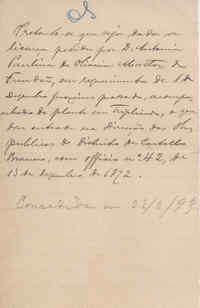 Pretende-se que seja dada a
licença pedida por D. Antonia
Paulina de Oliveira
em requerimento de 1 de
Dezembro proximo passado, acompa-
nhado da planta em triplicado, e que
deu entrada na Direcção das Obras
publicas do Districto de Castello
Branco, com officio nº 42, de
13 de dezembro de 1892.
Concedida em